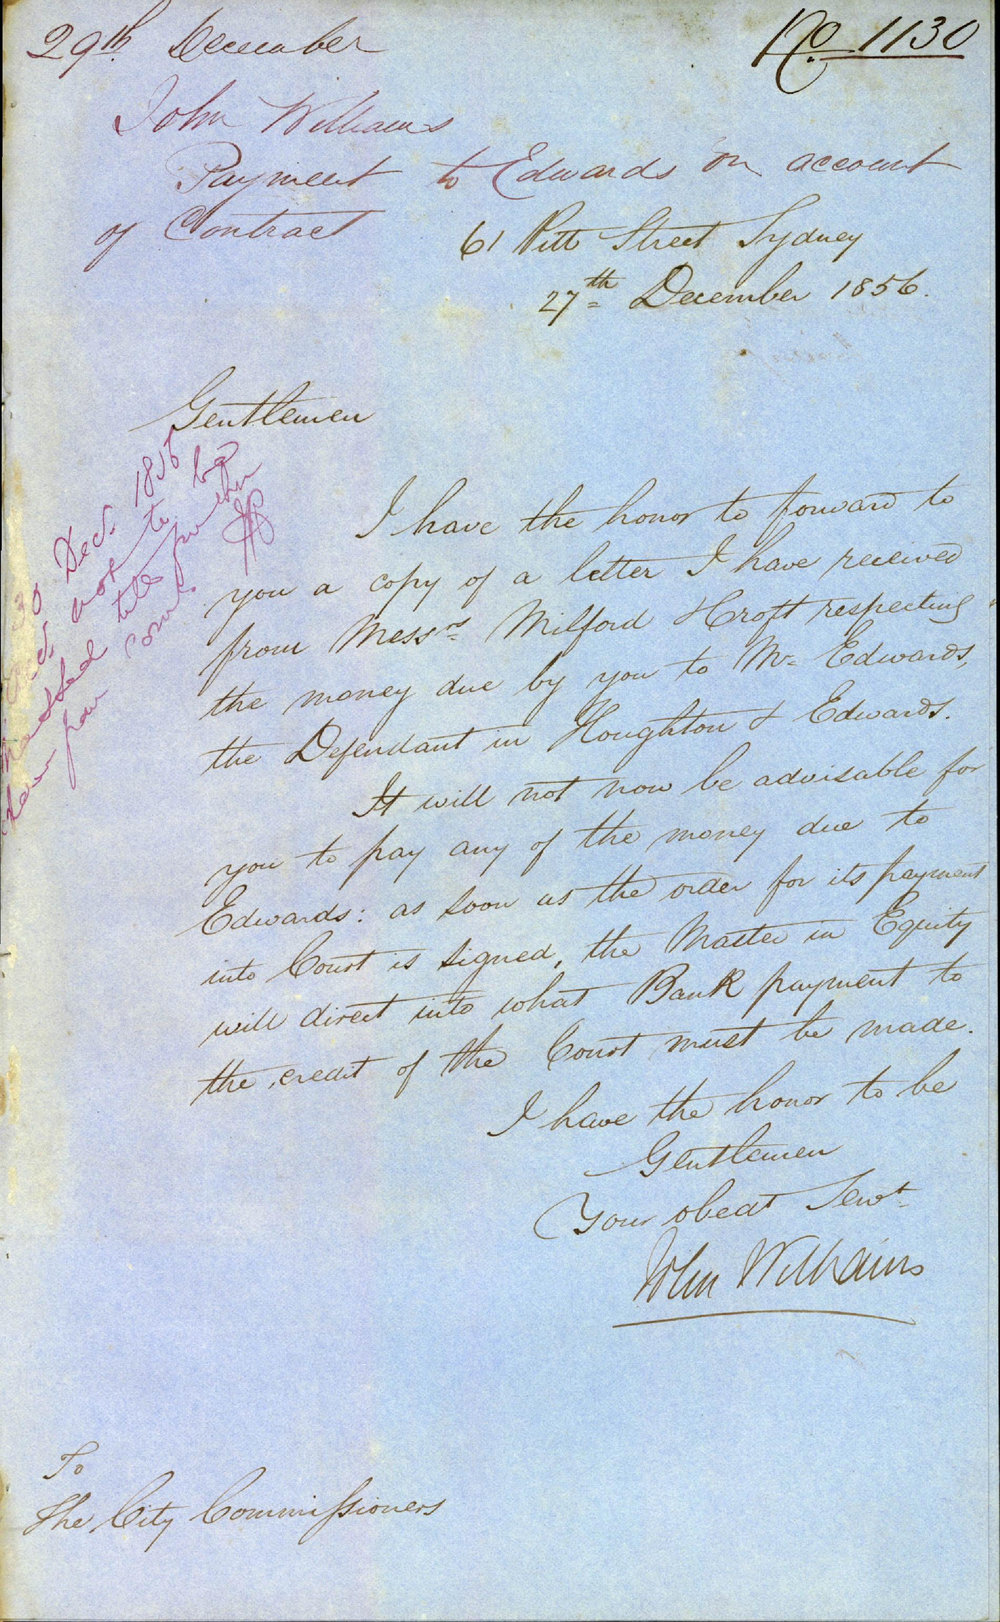 29th December
No. 1130
John Williams
Payment to Edwards on account
of Contract
61 Pitt Street Sydney
27th December 1856.
Gentlemen
30 Decr. 1856
not to be
title further
I have the honor to forward to
you a copy of a letter I have received
from Messrs Milford & Croft respecting
the money due by you to Mr Edwards,
the Defendant in Houghton & Edwards.
It will not now be advisable for
you to pay any of the money due to
Edwards: as soon as the order for its payment
into Court is signed, the Master in Equity
will direct into what Bank payment to
the credit of the Court must be made.
I have the honor to be
Gentlemen
Your obedt Servt
John Williams
To
The City Commissioners